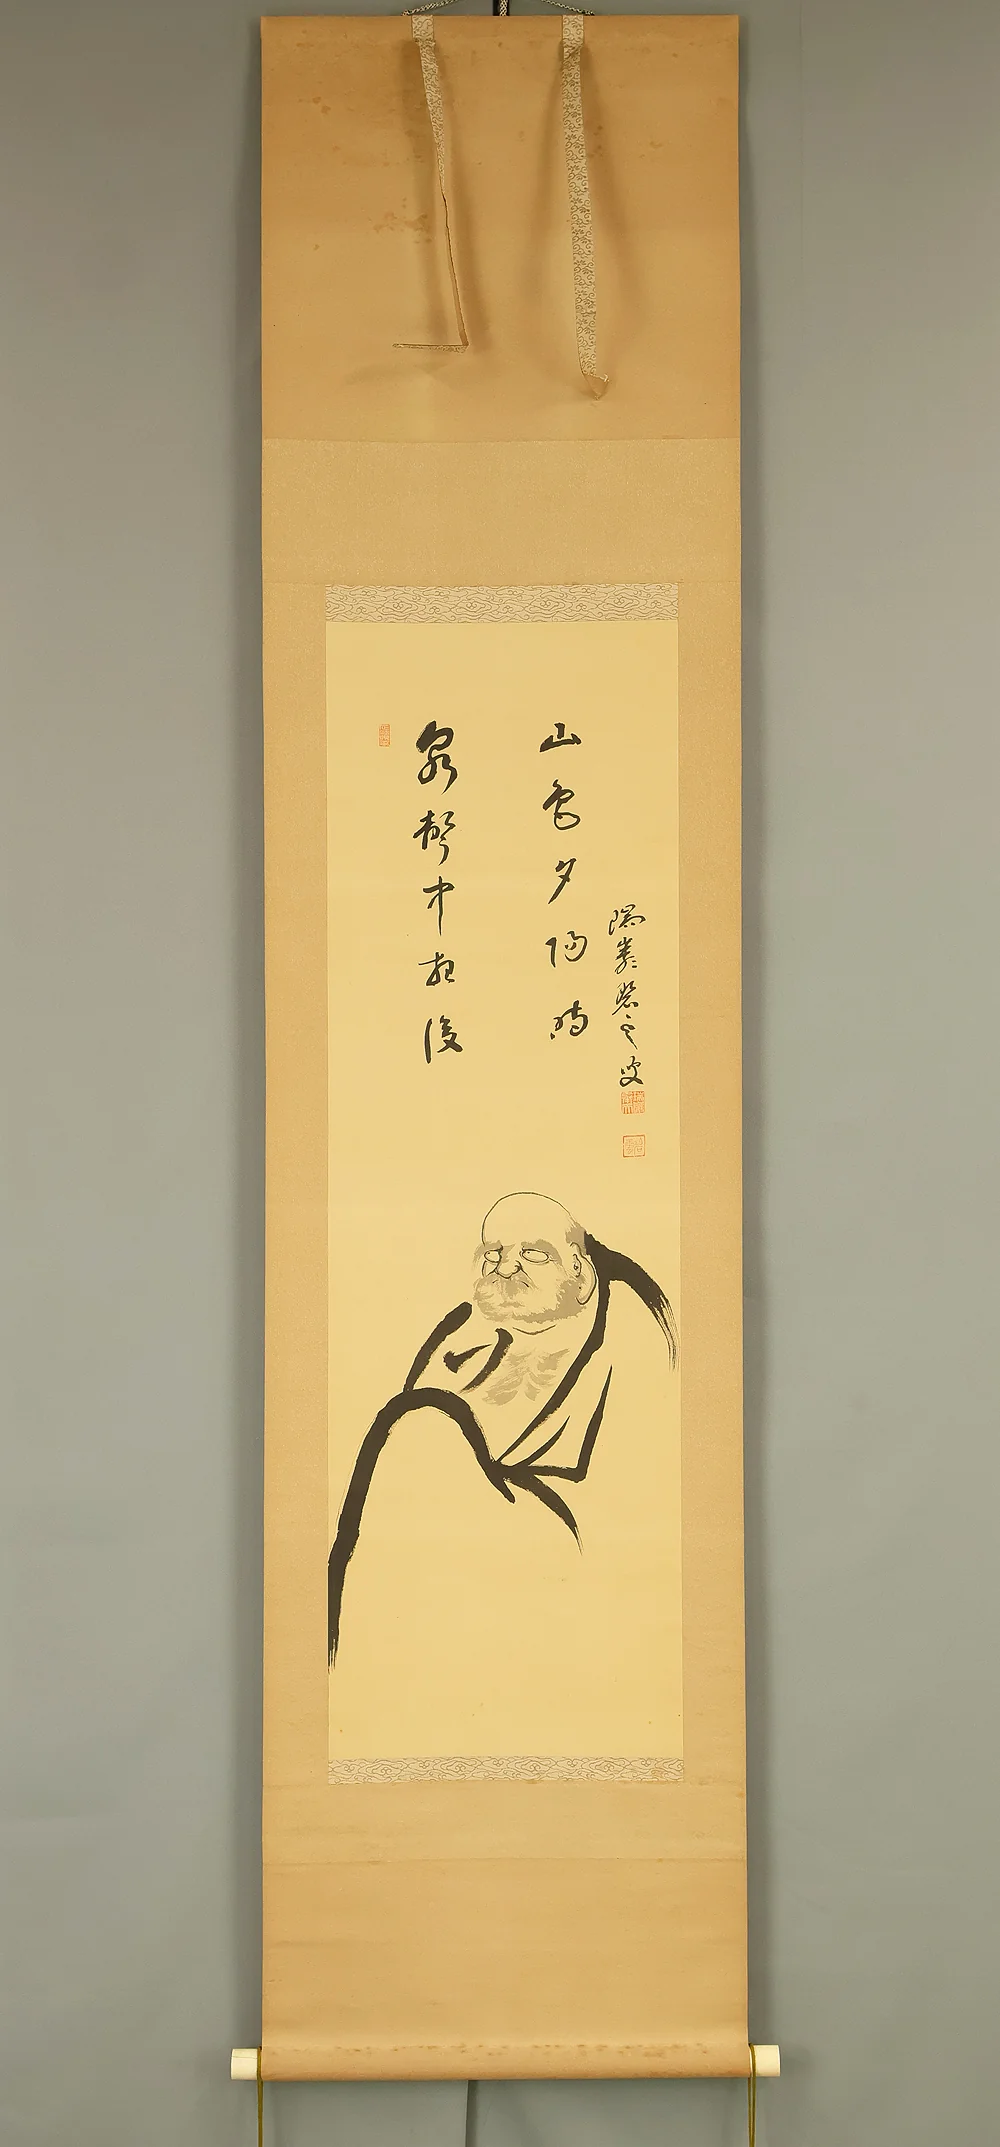 泉聲中夜後
山色夕陽時
瑞巖叟